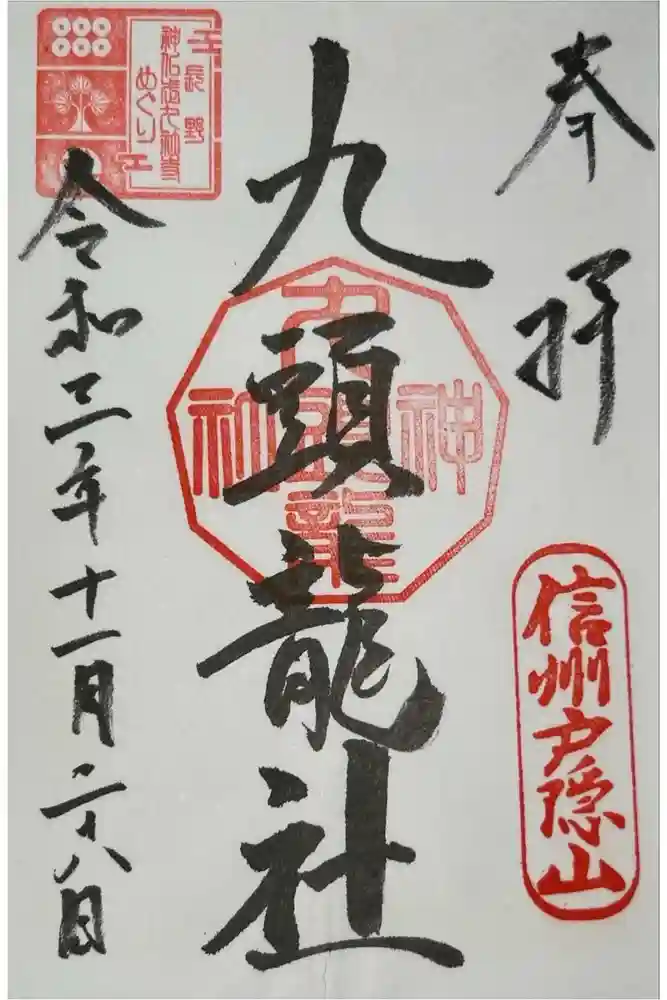 奉拝
信州戸隠山
九頭龍社
九頭龍
神社
令和三年十一月二十八日
長野
めぐり